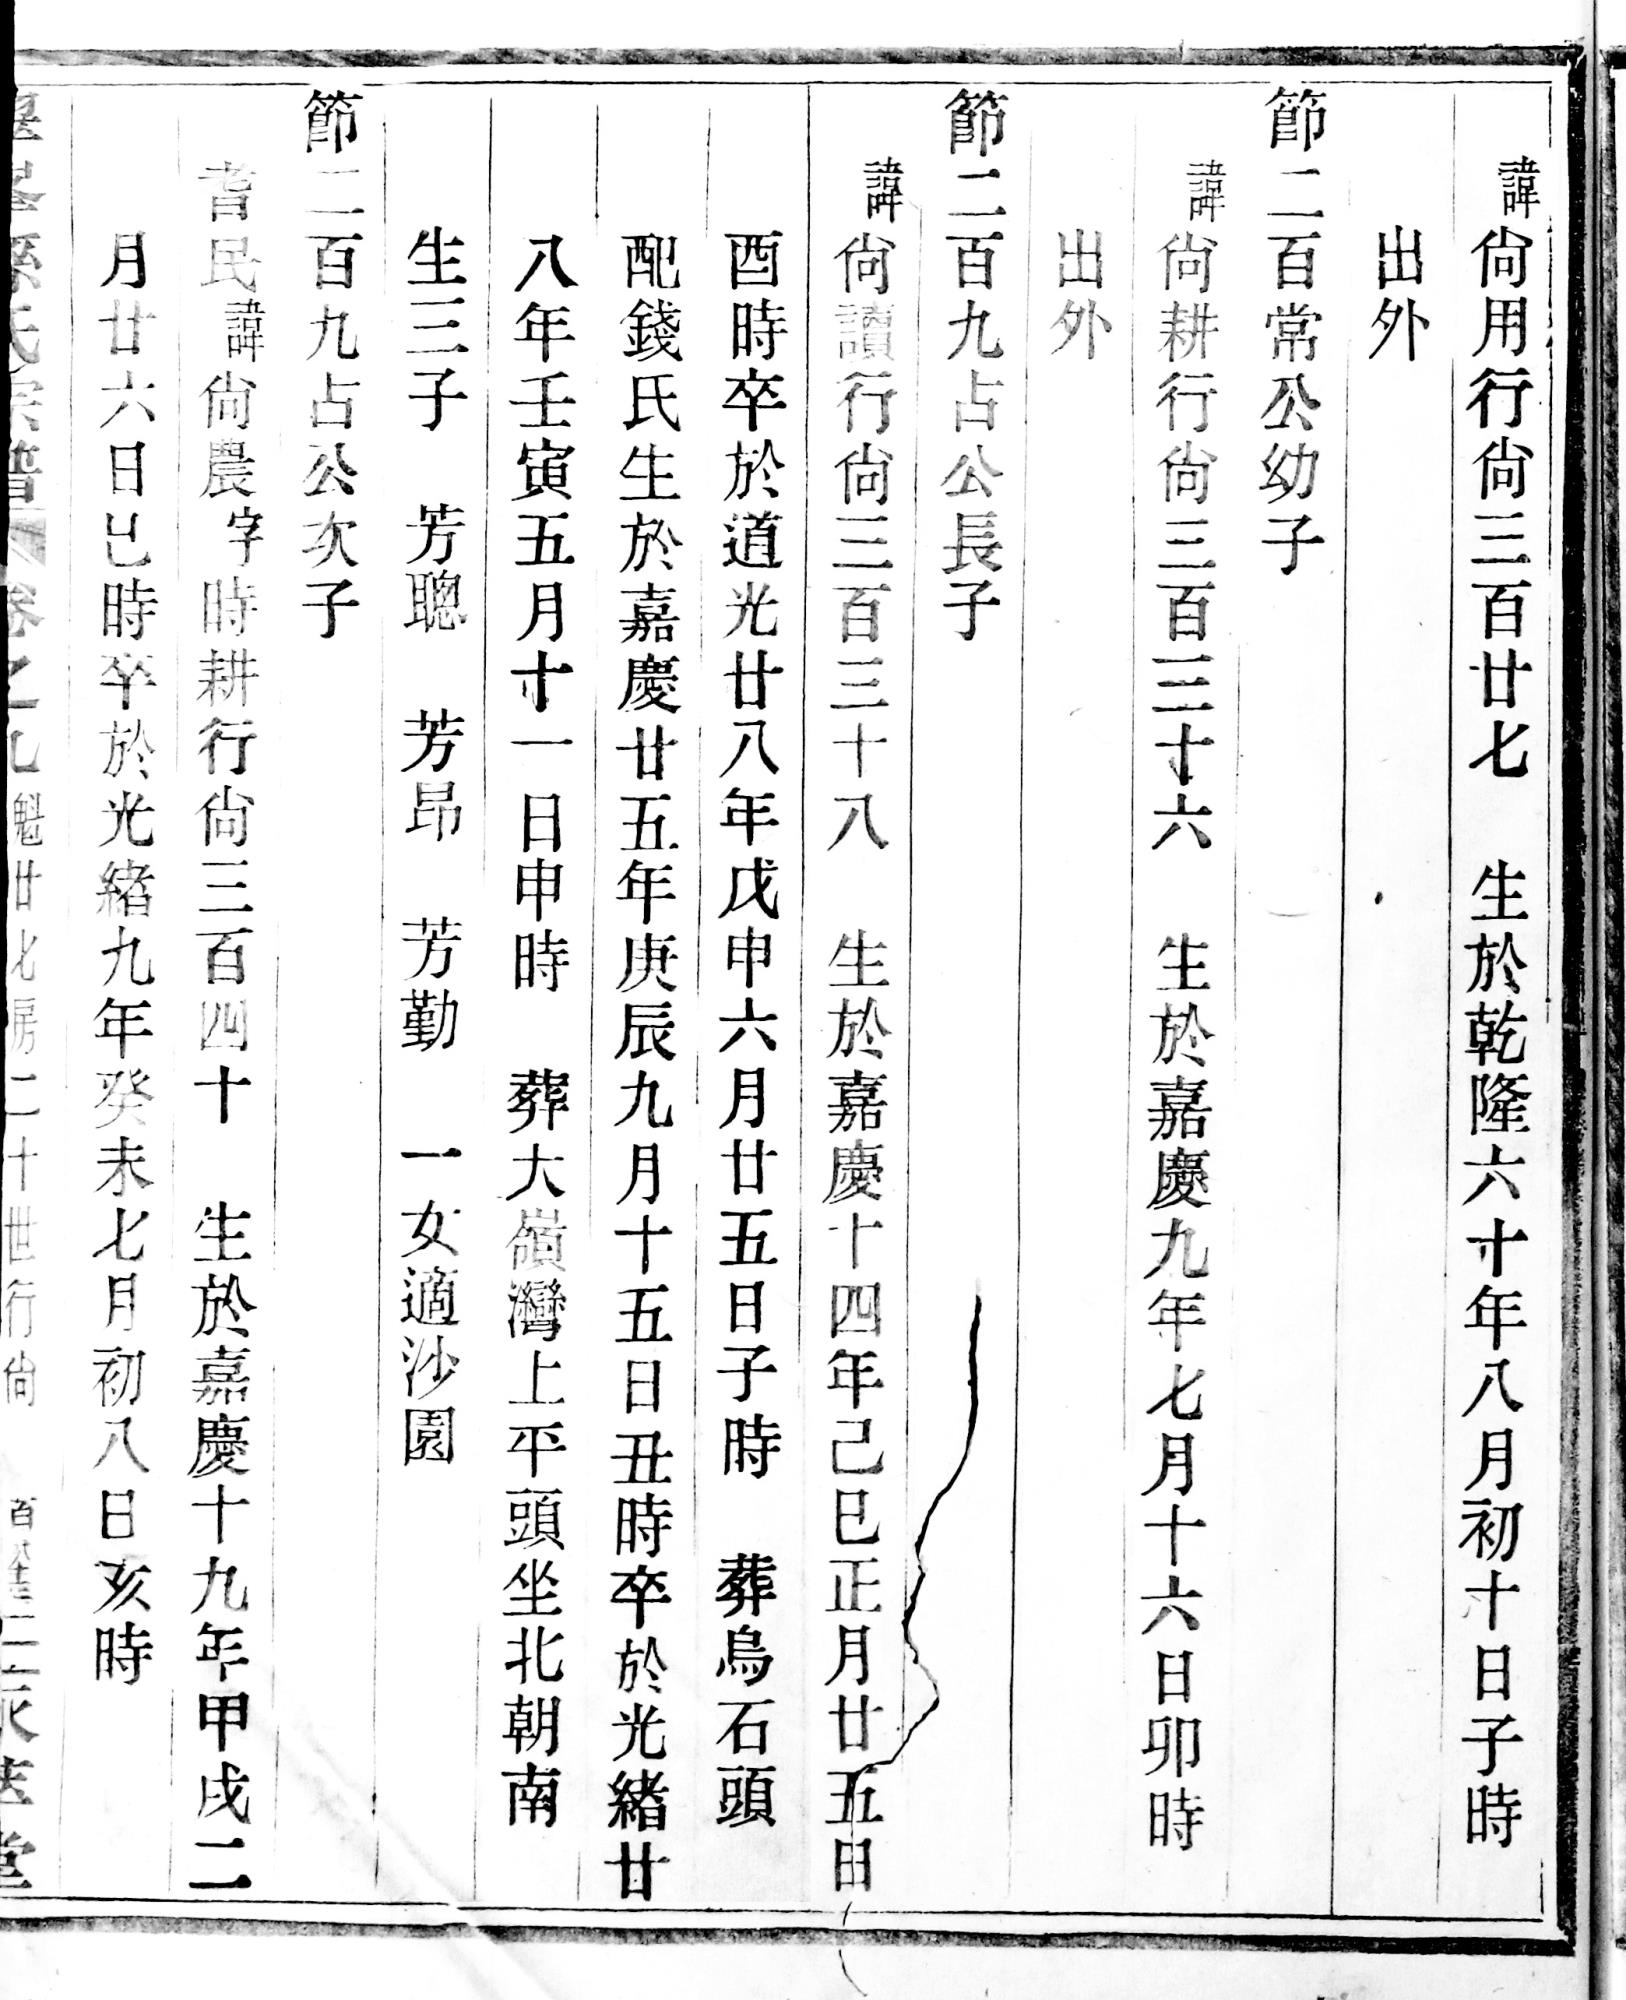 諱尙用行尙三百廿七　生於乾隆六十年八月初十日子時
出外
節二百常公幼子
諱尙耕行尙三百三十六　生於嘉慶九年七月十六日卯時
出外
節二百九占公長子
諱尙讀行尙三百三十八　生於嘉慶十四年己巳正月廿五日
酉時卒於道光廿八年戊申六月廿五日子時　葬烏石頭
配錢氏生於嘉慶廿五年庚辰九月十五日丑時卒於光緒廿
八年壬寅五月十一日申時　葬大嶺灣上平頭坐北朝南
生三子　芳聰　芳昂　芳勤　一女適沙園
節二百九占公次子
耆民諱尙農字時耕行尙三百四十　生於嘉慶十九年甲戌二
月廿六日巳時卒於光緒九年癸未七月初八日亥時
孫氏宗譜　卷之九　魁廿七房二十世行尙　堂